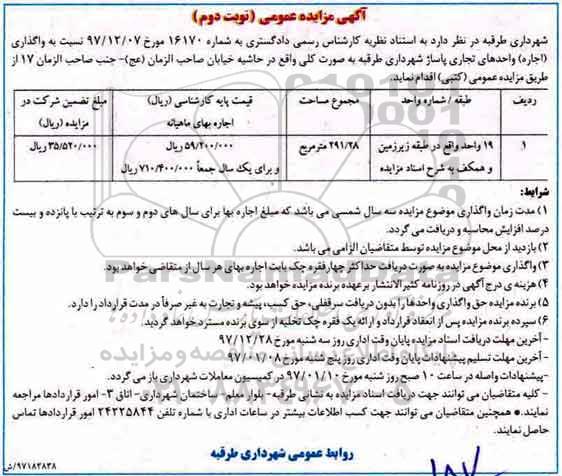 آگهی مزایده عمومی (نوبت دوم)
شهرداری طرقبه در نظر دارد به استناد نظریه کارشناس رسمی دادگستری به شماره ۱۶۱۷۰ مورخ ۹۷/۱۲/۰۷ نسبت به واگذاری
(اجاره) واحدهای تجاری پاساژ شهرداری طرقبه به صورت کلی واقع در حاشیه خیابان صاحب الزمان (عج)- جنب صاحب الزمان ۱۷ از
طریق مزایده عمومی (کتبی) اقدام نماید.
ردیف طبقه / شماره واحد مجموع مساحت قیمت پایه کارشناسی (ریال) مبلغ تضمین شرکت در
اجاره بهای ماهیانه مزایده (ریال)
۱ ۱۹ واحد واقع در طبقه زیرزمین ۲۹۱/۲۸ مترمربع ۵۹/۲۰۰/۰۰۰ ریال ۳۵/۵۲۰/۰۰۰ ریال
و همکف به شرح اسناد مزایده و برای یک سال جمعاً ۷۱۰/۴۰۰/۰۰۰ ریال
شرایط:
۱) مدت زمان واگذاری موضوع مزایده سه سال شمسی می باشد که مبلغ اجاره بها برای سال های دوم و سوم به ترتیب با پانزده و بیست
درصد افزایش محاسبه و دریافت می گردد.
۲) بازدید از محل موضوع مزایده توسط متقاضیان الزامی می باشد.
۳) واگذاری موضوع مزایده به صورت دریافت حداکثر چهار فقره چک بابت اجاره بهای هر سال از متقاضی خواهد بود.
۴) هزینه ی درج آگهی در روزنامه کثیرالانتشار بر عهده برنده مزایده خواهد بود.
۵) برنده مزایده حق واگذاری واحدها را بدون دریافت سرقفلی، حق کسب، پیشه و تجارت به غیر صرفاً در مدت قرارداد را دارد.
۶) سپرده برنده مزایده پس از انعقاد قرارداد و ارائه یک فقره چک تخلیه از سوی برنده مسترد خواهد گردید.
-آخرین مهلت دریافت اسناد مزایده پایان وقت اداری روز سه شنبه مورخ ۹۷/۱۲/۲۸
-آخرین مهلت تسلیم پیشنهادات پایان وقت اداری روز پنج شنبه مورخ ۹۷/۰۱/۰۸
-پیشنهادات واصله در ساعت ۱۰ صبح روز شنبه مورخ ۹۷/۰۱/۱۰ در کمیسیون معاملات شهرداری باز می گردد.
- کلیه متقاضیان می توانند جهت دریافت اسناد مزایده به نشانی طرقبه- بلوار معلم- ساختمان شهرداری- اتاق ۳- امور قراردادها مراجعه
نمایند.● همچنین متقاضیان می توانند جهت کسب اطلاعات بیشتر در ساعات اداری با شماره تلفن ۲۴۲۲۵۸۴۴ امور قراردادها تماس
حاصل نمایند.
روابط عمومی شهرداری طرقبه
۹۷۱۸۳۸۳۸/ش
ParsNamadData